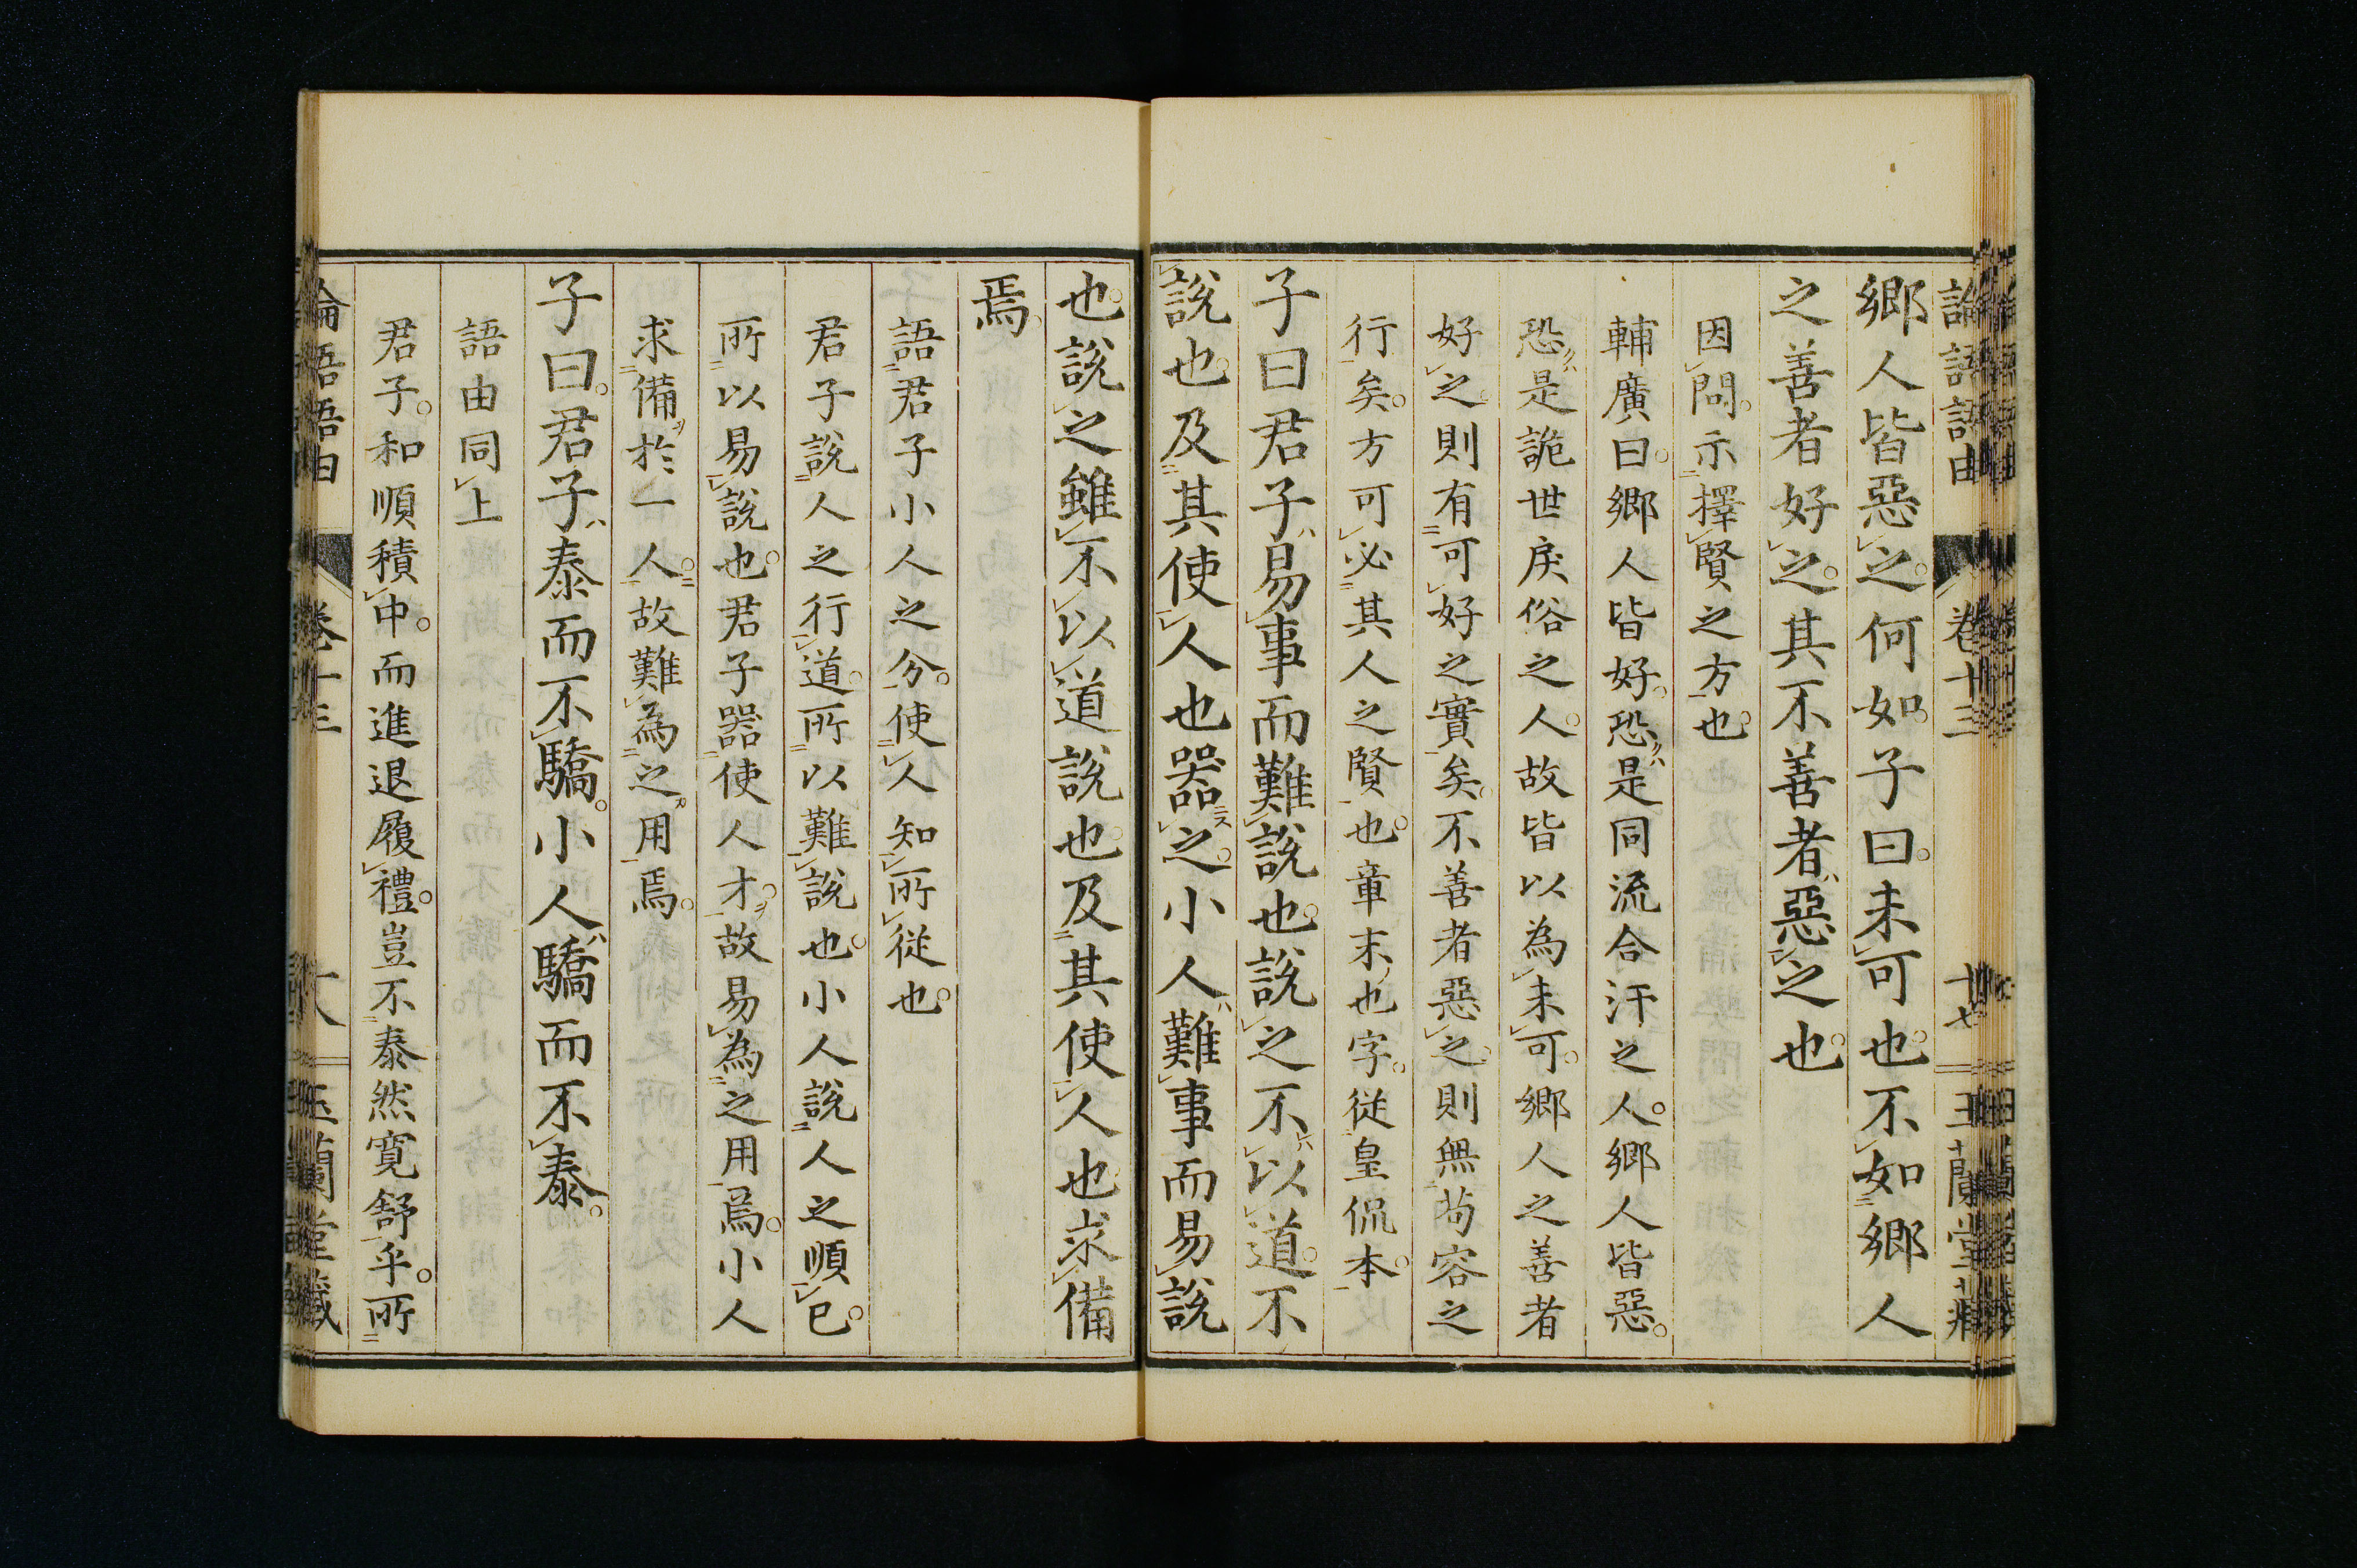 論語語由 卷十三 十七 玉蘭堂藏
鄉人皆惡之。何如。子曰。未可也。不如鄉人
之善者好之。其不善者惡之也。
因問。示擇賢之方也。
輔廣曰。鄉人皆好。恐是同流合汙之人。鄉人皆惡。
恐是詭世戾俗之人。故皆以為未可。鄉人之善者
好之。則有可好之實矣。不善者惡之。則無苟容之
行矣。方可必其人之賢也。章末也字。從皇侃本。
子曰君子ハ易事而難說也。說之不以道。不
說也。及其使人也器之。小人ハ難事而易說
也。說之雖不以道說也。及其使人也求備
焉。
語君子小人之分。使人知所從也。
君子說人之行道。所以難說也。小人說人之順已。
所以易說也。君子器使人才。故易為之用焉。小人
求備於一人。故難為之用焉。
子曰。君子ハ泰而不驕。小人ハ驕而不泰。
語由同上
君子。和順積中。而進退履禮。豈不泰然寬舒乎。所
論語語由 卷十三 玉蘭堂藏